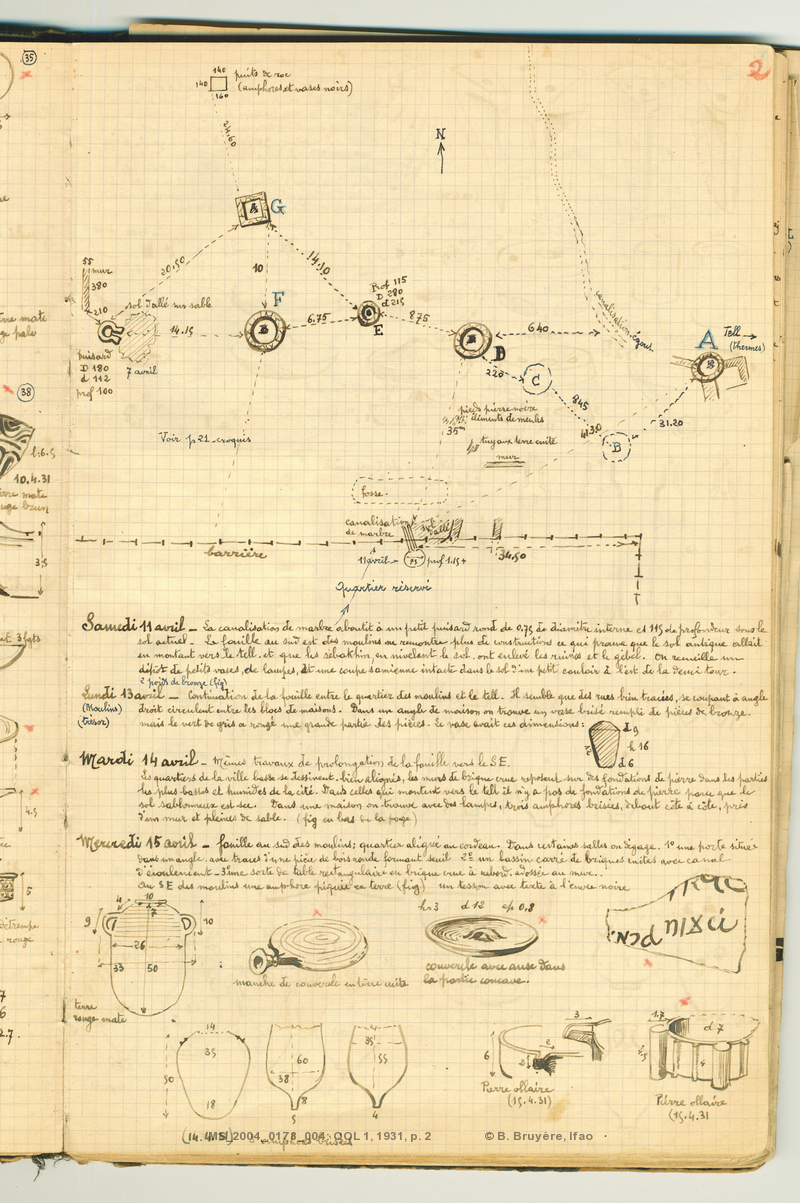 35
2
140
140
160
puits de roc
(amphores et vases noirs)
24.60
N
A
G
20.50
10
14.10
55
mur
380
210
sol dallé sur sable
F
B
14.15
6.75
Prof 115
D 280
d 215
E
875
A
D
640
canalisation égout
A
Tell →
(thermes)
B
puisard
D 180
d 112
prof 100
7 avril
220
C
845
4130
31.20
B
38
Voir p 21 croquis
pieds pierre noire
éléments de meules
35
tuyaux terre cuite
mur
h: 6.5
10.4.31
fosse
canalisation
de marbre
sol dallé
barrière
11 avril
75
prof 1.15
34.50
Quartier réservé
Samedi 11 avril _ La canalisation de marbre aboutit à un petit puisard rond de 0.75 de diamètre interne et 115 de profondeur sous le
sol actuel _ La fouille au sud est des moulins ne rencontre plus de constructions ce qui prouve que le sol antique allait
en montant vers le tell et que les sebakhin en nivelant le sol, ont enlevé les ruines et le gébel. On recueille un
dépôt de petits vases, de lampes, et une coupe samienne intacte dans le sol d'un petit couloir à l'est de la demi tour.
2 poids de bronze (fig)
Lundi 13 avril _ Continuation de la fouille entre le quartier des moulins et le tell. Il semble que des rues bien tracées, se coupant à angle
(Moulins) droit circulent entre les blocs de maisons. Dans un angle de maison on trouve un vase brisé rempli de pièces de bronze.
(trésor) mais le vert de gris a rongé une grande partie des pièces. Le vase avait ces dimensions:
d 9
h 16
d 6
Mardi 14 avril _ Mêmes travaux de prolongation de la fouille vers le S.E.
Les quartiers de la ville basse se dessinent bien alignés, les murs de brique crue reposent sur des fondations de pierre dans les parties
les plus basses et humides de la cité. Dans celles qui montent vers le tell il n'y a pas de fondations de pierre parce que le
sol sablonneux est sec. Dans une maison on trouve avec des lampes, trois amphores brisées, debout côte à côte, près
d'un mur et pleines de sable. (fig en bas de la page)
Mercredi 15 avril _ fouille au sud des moulins; quartier aligné au cordeau. Dans certaines salles on dégage. 1° une porte située
dans un angle, avec traces d'une pièce de bois ronde formant seuil 2° un bassin carré de briques cuites avec canal
d'écoulement _ 3° une sorte de table rectangulaire en brique crue à rebord, adossée au mur.
Au SE des moulins une amphore piquée en terre (fig) un tesson avec texte à l'encre noire
4
10
7
9
10
26
33
50
terre
rouge mate
manche de couvercle en terre cuite
h=3 d 12 ep 0.8
couvercle avec anse dans
la partie concave.
14
35
50
18
60
38
8
5
35
55
4
3
6
2
2
Pierre ollaire
(15.4.31)
1.7
d 7
Pierre ollaire
(15.4.31
MSI_2004_0178_004; QOL 1, 1931, p. 2
© B. Bruyère, Ifao